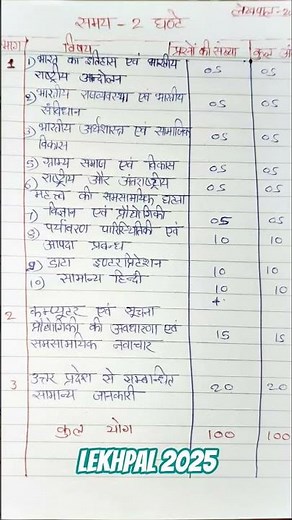 लेखपाल-20
समय - 2 घण्टे
भाग विषय प्रश्नों की संख्या कुल अं
1 1) भारत का इतिहास एवं भारतीय 05 05
राष्ट्रीय आन्दोलन
2) भारतीय राजव्यवस्था एवं भारतीय 05 05
संविधान
3) भारतीय अर्थशास्त्र एवं सामाजिक 05 05
विकास
5) ग्राम्य समाज एवं विकास 05 05
6) राष्ट्रीय और अंतर्राष्ट्रीय 05 05
महत्व की समसामायिक घटना
7) विज्ञान एवं प्रौद्योगिकी 05 05
8) पर्यावरण पारिस्थितिकी एवं 10 10
आपदा प्रबन्ध
9) डाटा इण्टरप्रिटेशन 10 10
10) सामान्य हिन्दी 10 10
+
2 कम्प्यूटर एवं सूचना
प्रौद्योगिकी की अवधारणा एवं 15 15
समसामायिक नवाचार
3 उत्तर प्रदेश से सम्बन्धित 20 20
सामान्य जानकारी
कुल योग 100 100
LEKHPAL 2025